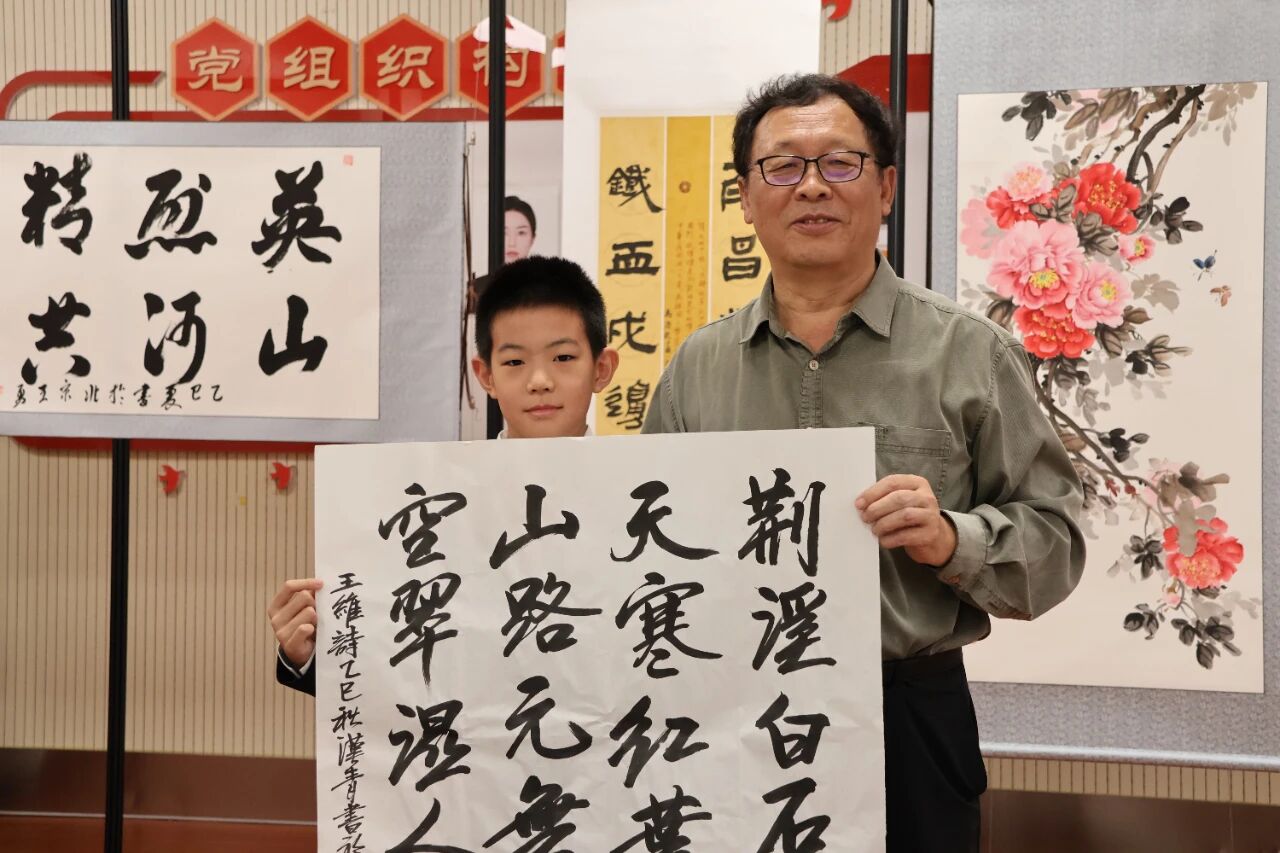 党组织构
英烈精
山河共
乙巳夏書於北京王勇
南昌
鐵血戍邊
荆溪白石
天寒红葉
山路元無
空翠濕人
王維詩乙巳秋漢青書於